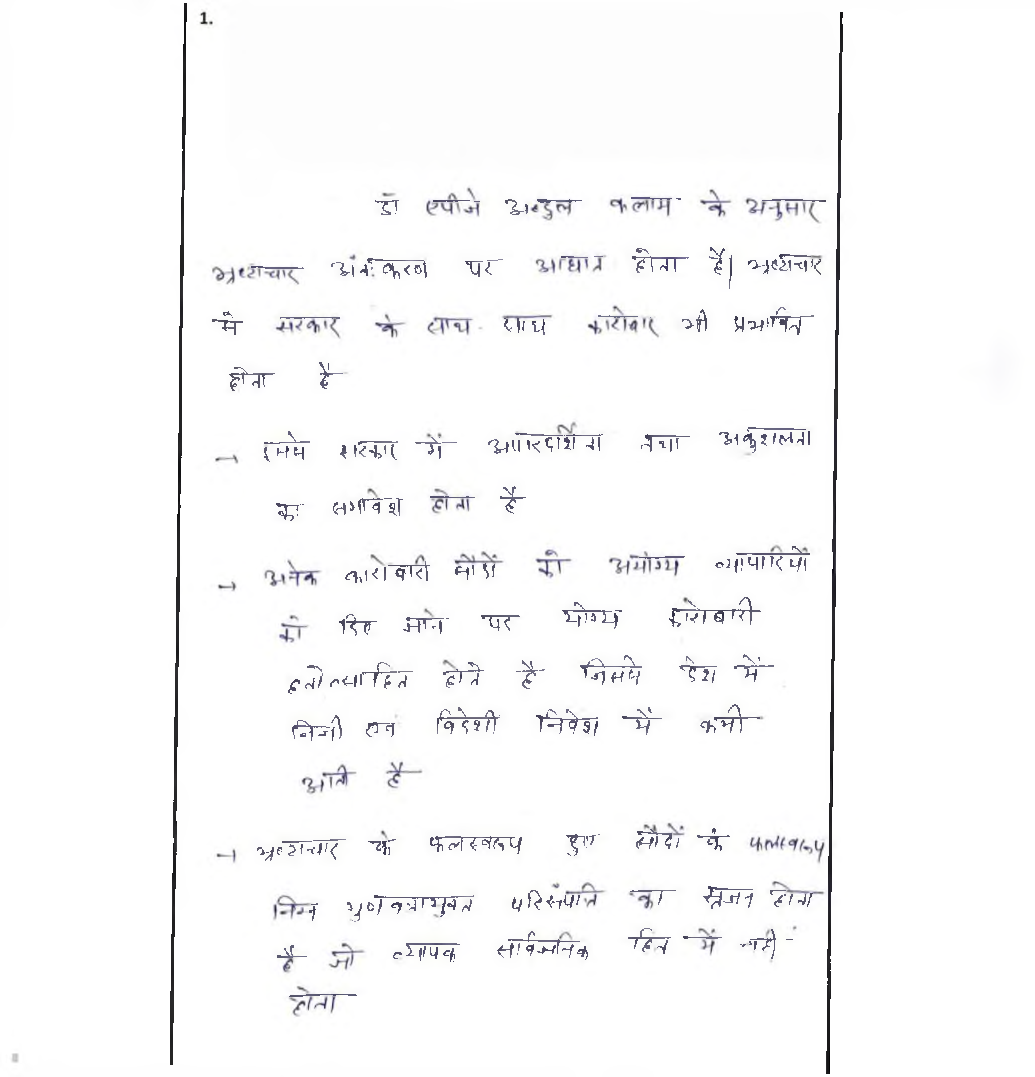 1.
डॉ एपीजे अब्दुल कलाम के अनुसार
भ्रष्टाचार अंतःकरण पर आघात होता है। भ्रष्टाचार
से सरकार के साथ-साथ कारोबार भी प्रभावित
होता है
→ इससे सरकार में अपारदर्शिता तथा अकुशलता
का समावेश होता है
→ अनेक कारोबारी सौदों को अयोग्य व्यापारियों
को दिए जाने पर योग्य कारोबारी
हतोत्साहित होते है जिससे देश में
निजी एवं विदेशी निवेश में कमी
आती है
→ भ्रष्टाचार के फलस्वरूप हुए सौदों के फलस्वरूप
निम्न गुणवत्तायुक्त परिसंपत्ति का सृजन होता
है जो व्यापक सार्वजनिक हित में नहीं
होता